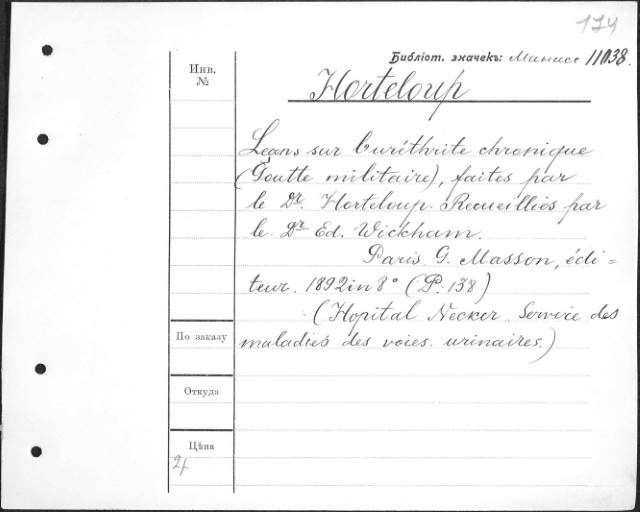 174
Библіот. значекъ: Манасс 11038.
Инв.
№
Horteloup
Leçons sur l'uréthrite chronique
(Goutte militaire), faites par
le Dr. Horteloup. Recueilliés par
le Dr Ed. Wickham.
Paris G. Masson, édi=
teur. 1892 in 8° (P. 138)
(Hopital Necker. Service des
По заказу
maladiés des voies urinaires.)
Откуда
Цѣна